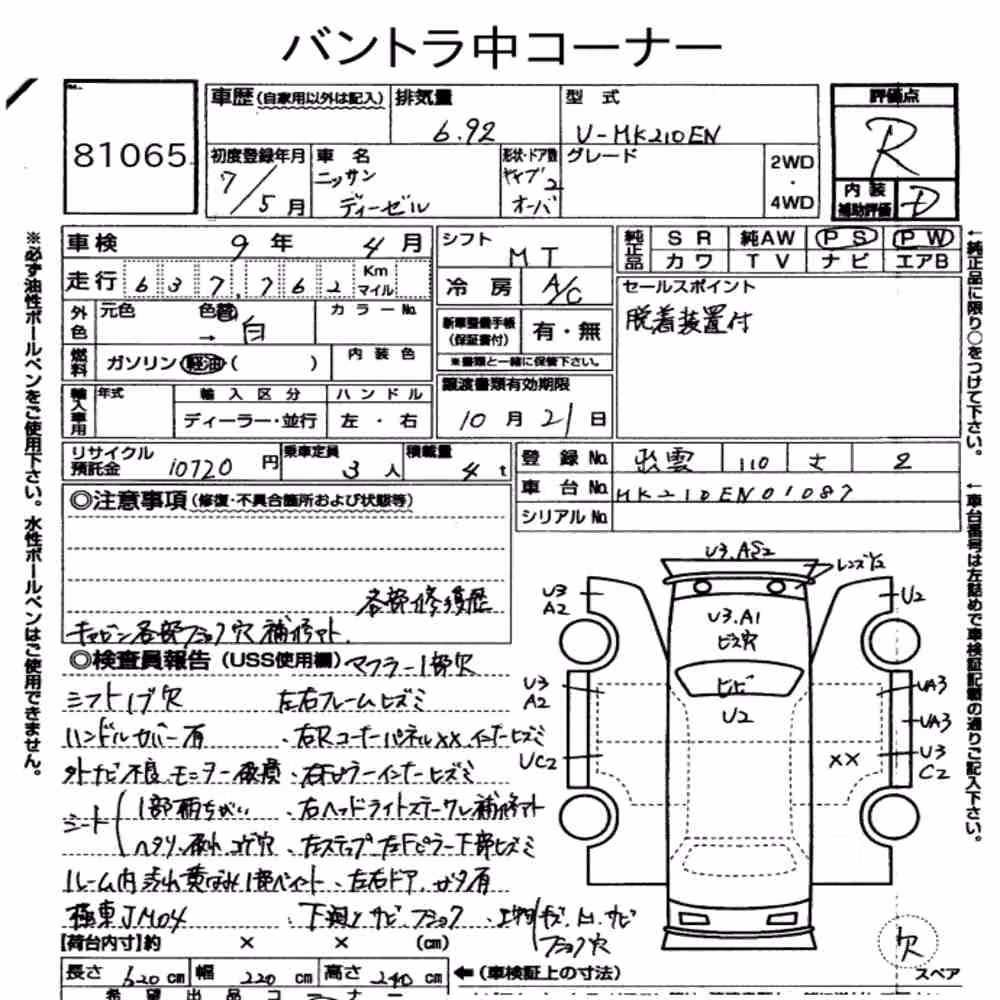 バントラ中コーナー
81065
車歴(自家用以外は記入)
排気量
6.92
型 式
U-MK210EN
評価点
R
初度登録年月
7/5月
車 名
ニッサン
ディーゼル
形状・ドア数
2
オーバ
グレード
2WD
・
4WD
内 装
補助評価
D
車検 9 年 4 月
走行 637,762 Km マイル
外色
元色
色替
→ 白
カラーNo.
燃料
ガソリン 軽油 ( )
内 装 色
輸入車用
年式
輸 入 区 分
ディーラー・並行
ハ ン ド ル
左 ・ 右
シフト
MT
冷 房
A/C
新車整備手帳
(保証書付)
有・無
※書類と一緒に保管下さい。
譲渡書類有効期限
10月21日
純正品
SR 純AW PS PW
カワ TV ナビ エアB
セールスポイント
脱着装置付
リサイクル
預託金
10720 円
乗車定員
3 人
積載量
4 t
登 録 No. 出雲 110 さ 2
車 台 No. MK210EN01087
シリアル No.
◎注意事項(修復・不具合箇所および状態等)
各部修復歴
キャビン各部フック穴 補修アト.
◎検査員報告(USS使用欄)マフラー1部欠
シフト1ブ欠 左右フレームヒズミ
ハンドルカバー有 ・右Rコーナーパネルxx インナーヒズミ
外ナビ不良 モニター破損 ・右Fピラーインナーヒズミ
シート
1部柄ちがい ・右ヘッドライトステー ズレ補修アト
・左ステップ 左Fピラー下部ヒズミ
・左右ドア ガタ有
JM04 ・下廻り サビ フック
フック穴
U3.AS2
レンズ1/2
U3
A2
U2
U3.A1
ビス穴
ヒビ
U2
U3
A2
UC2
UA3
UA3
U3
C2
xx
欠
スペア
[荷台内寸]約 × × (cm)
長さ 620 cm 幅 220 cm 高さ 240 cm
←(車検証上の寸法)
希 望 出 品 コ ー ナ ー
※必ず油性ボールペンをご使用下さい。水性ボールペンはご使用できません。
←純正品に限り○をつけて下さい。
←車台番号は左詰めで車検証記載の通りご記入下さい。